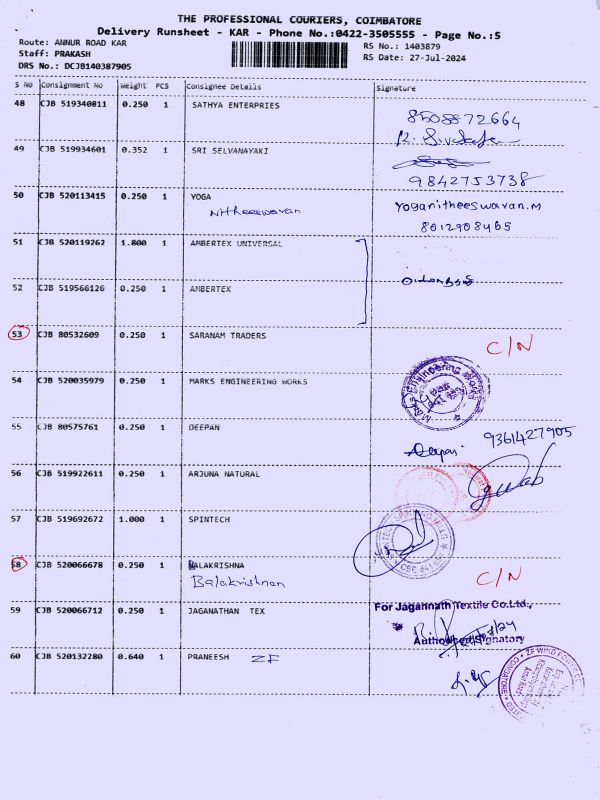 THE PROFESSIONAL COURIERS, COIMBATORE
Delivery Runsheet - KAR - Phone No.:0422-3505555 - Page No.:5
Route: ANNUR ROAD KAR RS No.: 1403879
Staff: PRAKASH RS Date: 27-Jul-2024
DRS No.: DCJB140387905
S No Consignment No Weight PCS Consignee Details Signature
48 CJB 519340811 0.250 1 SATHYA ENTERPRIES
8508872664
49 CJB 519934601 0.352 1 SRI SELVANAYAKI
9842753738
50 CJB 520113415 0.250 1 YOGA Yoganitheeswaran.M
Nitheeswaran 8012908465
51 CJB 520119262 1.800 1 AMBERTEX UNIVERSAL
52 CJB 519566126 0.250 1 AMBERTEX
53 CJB 80532609 0.250 1 SARANAM TRADERS C/N
54 CJB 520035979 0.250 1 MARKS ENGINEERING WORKS
55 CJB 80575761 0.250 1 DEEPAN
Deepan 9361427905
56 CJB 519922611 0.250 1 ARJUNA NATURAL
57 CJB 519692672 1.000 1 SPINTECH
58 CJB 520066678 0.250 1 BALAKRISHNA
Balakrishnan C/N
59 CJB 520066712 0.250 1 JAGANATHAN TEX For Jagannath Textile Co.Ltd.,
Authorised Signatory
60 CJB 520132280 0.640 1 PRANEESH ZF